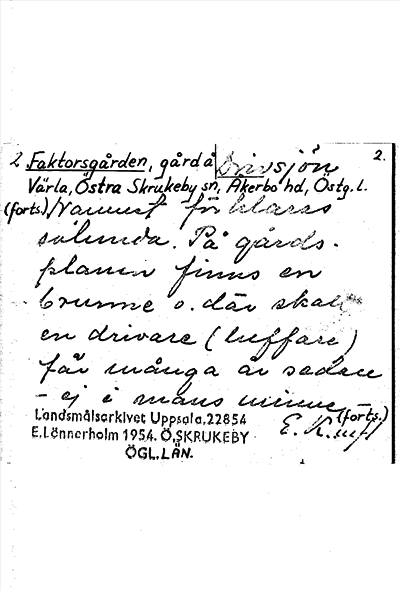 2 Faktorsgården, gård å Drivsjön 2.
Värla, Östra Skrukeby sn, Åkerbo hd, Östg. l.
(forts.) /Namnet förklaras
sålunda. På gårds-
planen finns en
brunne o. där skall
en drivare (luffare)
för många år sedan
- ej i mans minne - (forts.)
Landsmålsarkivet Uppsala, 22854
E. Lönnerholm 1954. Ö. SKRUKEBY
ÖGL. LÄN.